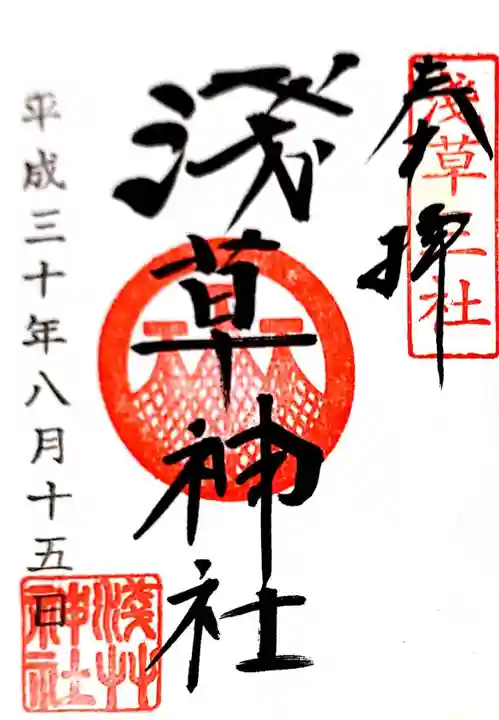 奉拝
淺草三社
淺草神社
平成三十年八月十五日
淺草神社